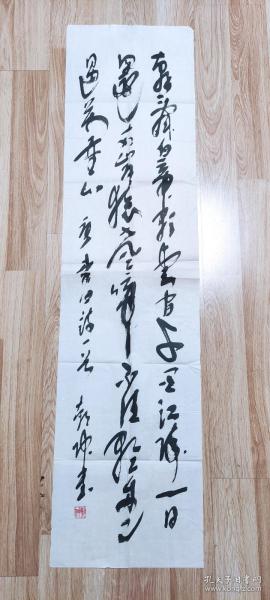 朝辞白帝彩云间千里江陵一日
還兩岸猿声啼不住轻舟已
過萬重山 唐李白诗一首 书
孔夫子旧书网